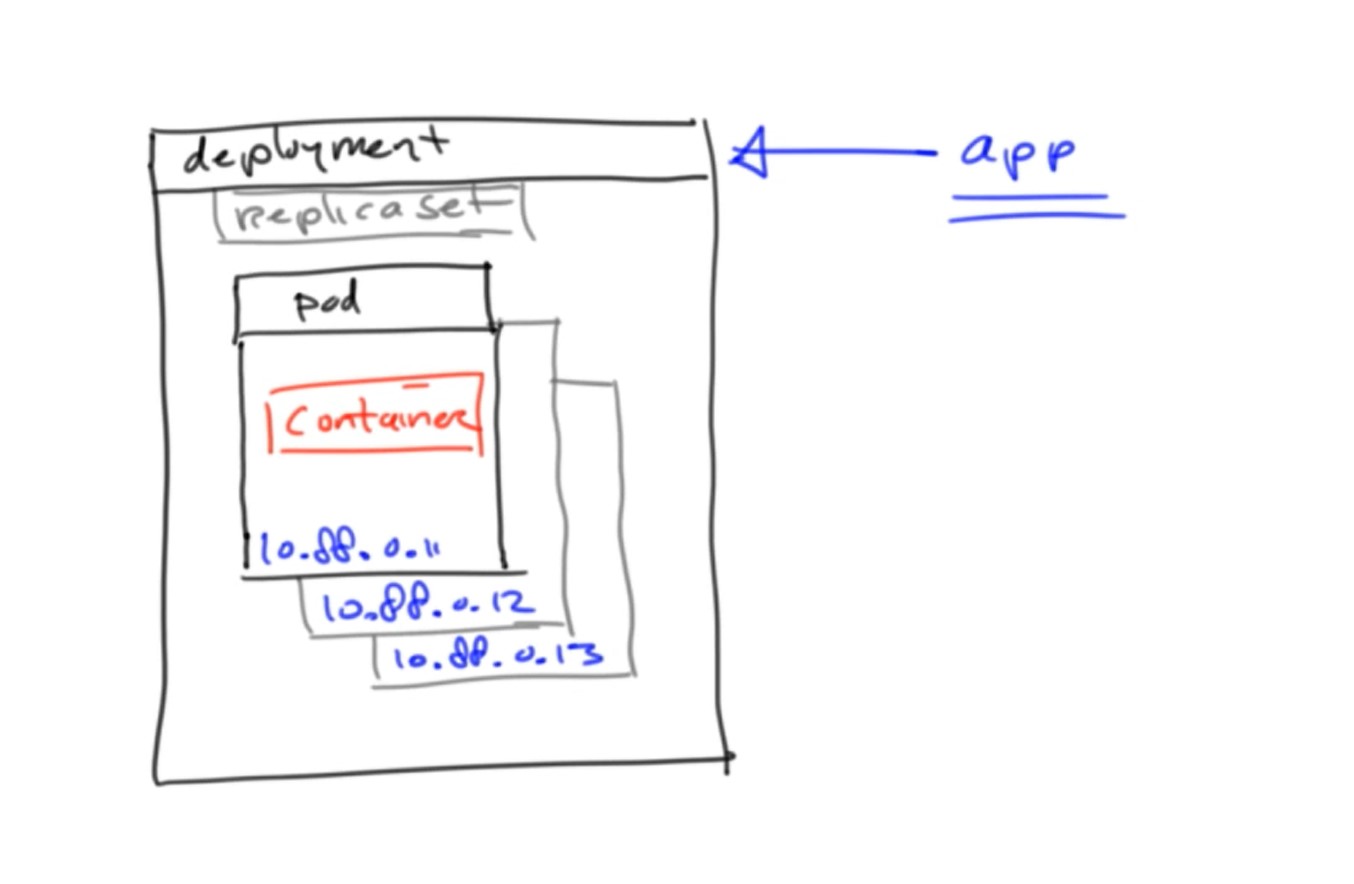 deployment
app
replicaset
pod
Container
10.88.0.11
10.88.0.12
10.88.0.13